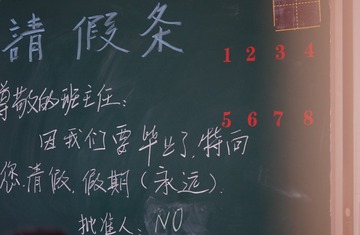 請假条
1 2 3 4
尊敬的班主任:
5 6 7 8
因我们要毕业了,特向
您请假,假期(永远).
批准人:NO